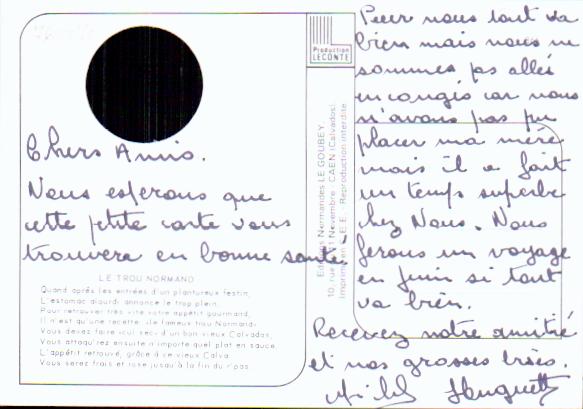 Chers Amis.
Nous esperons que
cette petite carte vous
trouvera en bonne santé
LE TROU NORMAND
Quand après les entrées d'un plantureux festin,
L'estomac alourdi annonce le trop plein,
Pour retrouver très vite votre appétit gourmand,
Il n'est qu'une recette: «le fameux trou Normand»
Vous devez faire «cul sec» d'un bon vieux Calvados,
Vous attaqu'rez ensuite n'importe quel plat en sauce,
L'appétit retrouvé, grâce à ce vieux Calva
Vous serez frais et rose jusqu'à la fin du r'pas.
Production
LECONTE
Editions Normandes LE GOUBEY
10, rue du 11 Novembre CAEN (Calvados)
Imprimé en C.E.E. Reproduction interdite
Pour nous tout va
bien mais nous ne
sommes pas allés
en congés car nous
n'avons pas pu
placer ma mère
mais il a fait
un temps superbe
chez Nous. Nous
ferons un voyage
en juin si tout
va bien.
Recevez notre amitié
et nos grosses bises.
Huguette